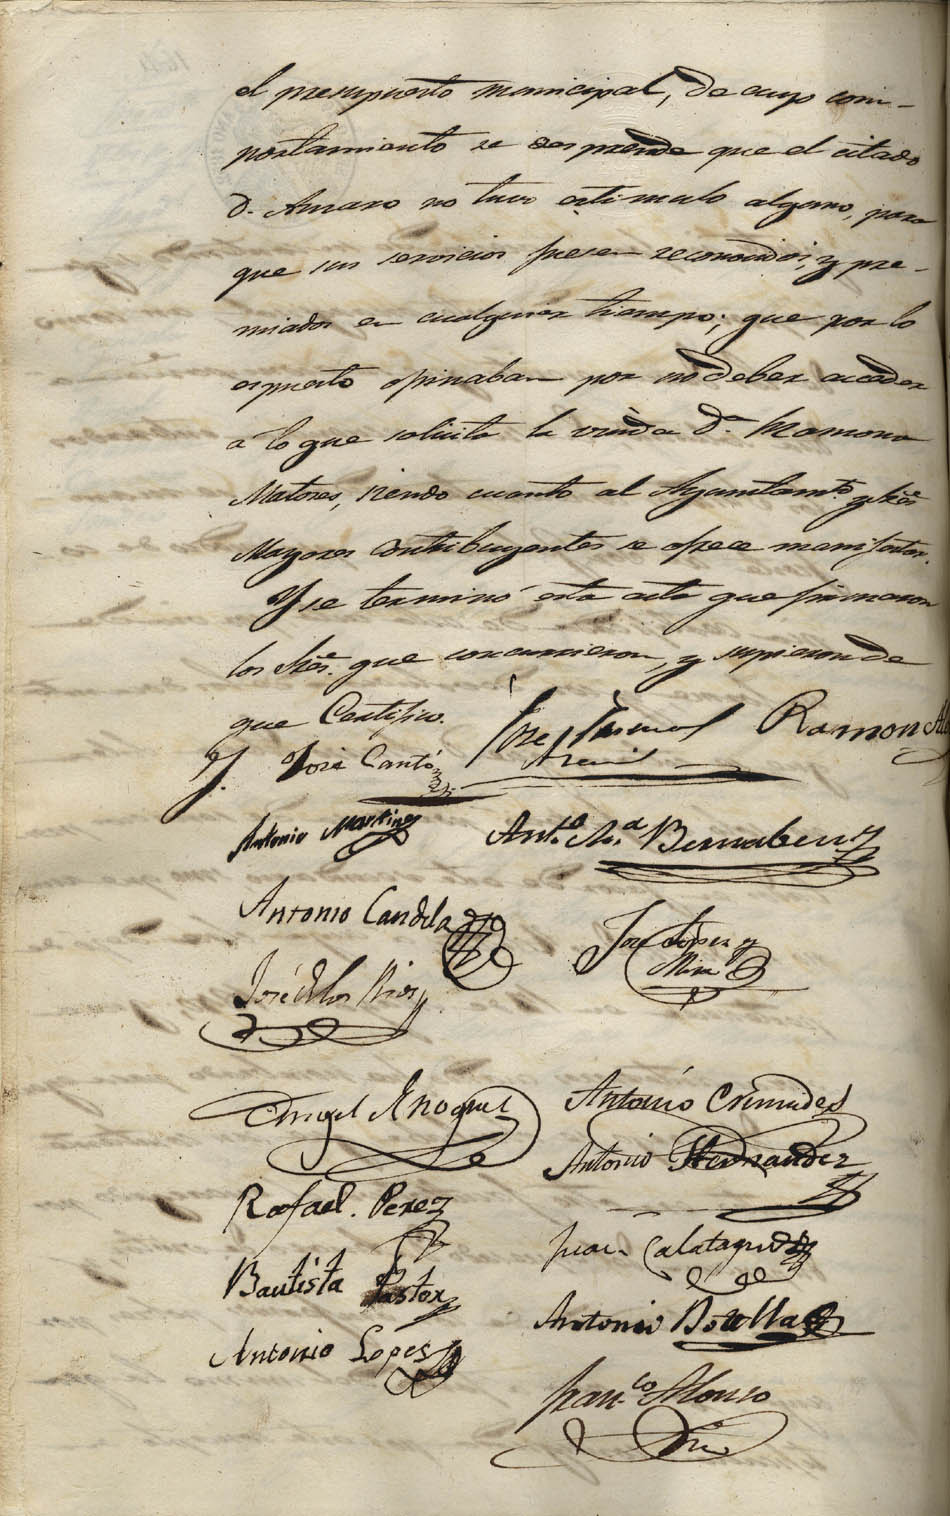 el presupuesto municipal, de cuyo com-
portamiento se desprende que el citado
D. Amaro no tuvo estimulo alguno, para
que sus servicios fuesen reconocidos, y pre-
miados en cualquier tiempo; que por lo
espuesto opinaban por no deber acceder
a lo que solicita la viuda D.ª Ramona
Matores, siendo cuanto al Ayuntam.to y Sres
Mayores contribuyentes se ofrece manifestar.
Y se terminó esta acta que firmaron
los Sres. que concurrieron, y supieron de
que Certifico.
José Cantó
José Ramon
Antonio Martinez Ant.o M.a Bernabeu
Antonio Candela José Lopez y
Mira
José de los Rios
Angel Antonio Crémades
Antonio Hernandez
Rafael. Perez
Juan Calatayud
Bautista Pastor
Antonio Botella
Antonio Lopes
Fran.co Alonso